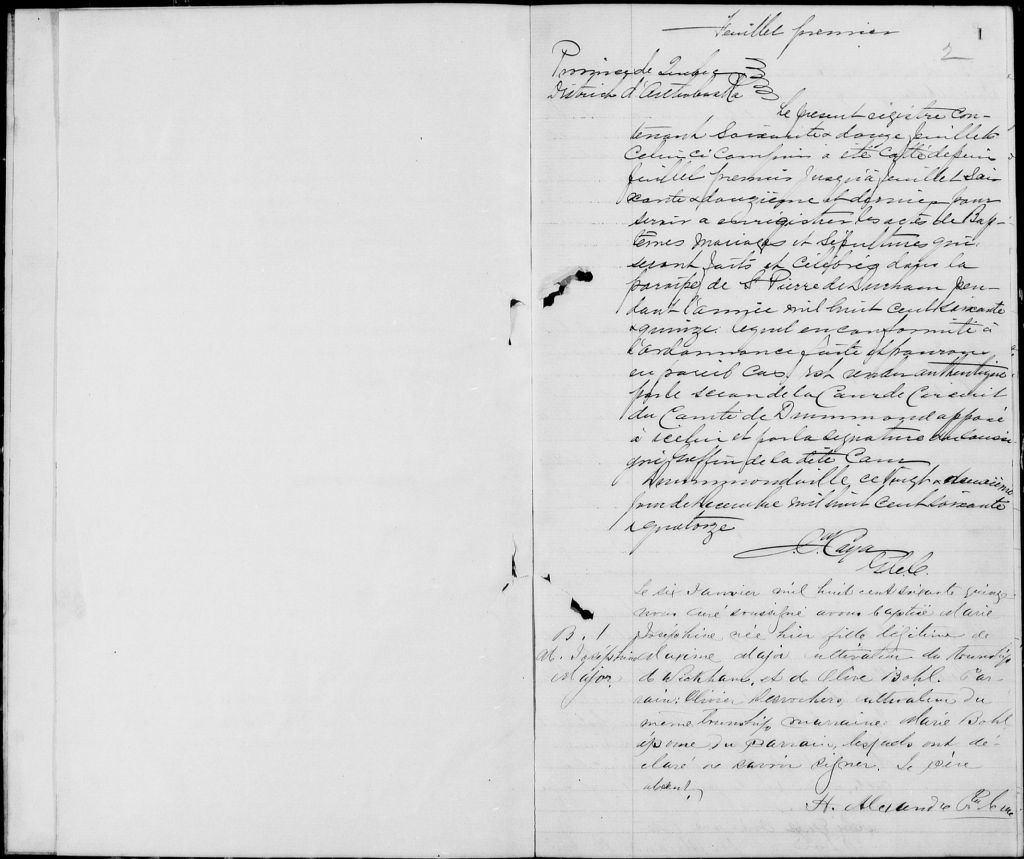 Feuillet premier
1
2
Province de Québec
District d'Arthabaska
Le présent régistre con-
tenant soixante & douze feuillets
celui ci compris a été cotté depuis
feuillet premier jusqu'à feuillet soi-
xante & douzième et dernier pour
servir a enrégistrer les actes de Bap-
têmes mariages et sépultures qui
seront faits et célébrés dans la
paroisse de St Pierre de Durham pen-
dant l'année mil huit cent soixante
& quinze lequel en conformité à
l'ordonnance faite et pourvue
en pareil cas, est rendu authentique
par le sceau de la Cour de Circuit
du Comté de Drummond apposé
à icelui et par la signature du soussi-
gné Greffier de la dite Cour
Drummondville, ce vingt & deuxième
jour de décembre mil huit cent soixante
& quatorze
Caya
G.C.C.
Le six Janvier mil huit cent soixante quinze
nous curé soussigné avons baptisé Marie
B. 1
Joséphine née hier fille légitime de
M. Joséphine
Maxime Major cultivateur du township
Major
de Wickham et de Olive Bohl. Par-
rain: Olivier Desrochers cultivateur du
même township marraine: Marie Bohl
épouse du parrain, lesquels ont dé-
claré ne savoir signer. Le père
absent.
H. Alexandre Ptre Curé